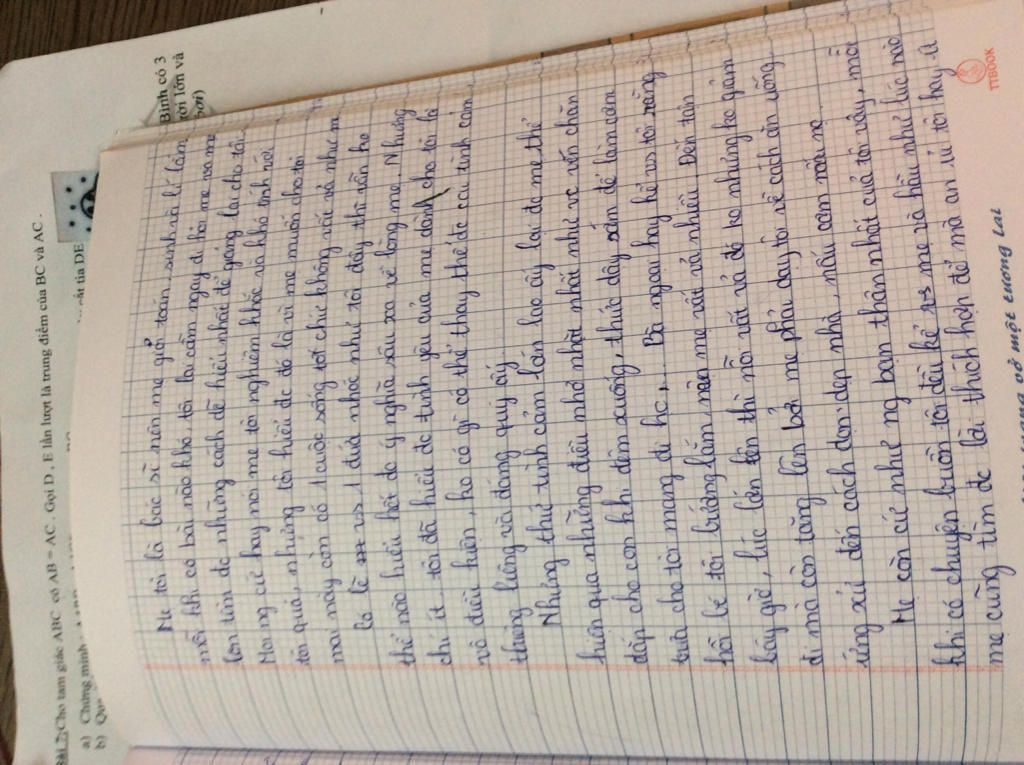 Bài 7: Cho tam giác ABC có AB = AC. Gọi D, E lần lượt là trung điểm của BC và AC.
a) Chứng minh
b)
cắt tia DE
Bình có 3
lớn và
Mẹ tôi là bác sĩ nên mẹ giỏi toán, sinh và lí lắm
mỗi khi có bài nào khó tôi lại cầm ngay đi hỏi mẹ và mẹ
luôn tìm dc những cách dễ hiểu nhất để giảng lại cho tôi.
Mọi ng cứ hay nói mẹ tôi nghiêm khắc và khó tính với
tôi quá, nhưng tôi hiểu dc đó là vì mẹ muốn cho tôi
mai này còn có 1 cuộc sống tốt chứ không vất vả như m
Có lẽ vs 1 đứa nhóc như tôi đây thì vẫn ko
thể nào hiểu hết dc ý nghĩa sâu xa về lòng mẹ. Nhưng
chí ít, tôi đã hiểu dc tình yêu của mẹ dành cho tôi là
vô điều kiện, ko có gì có thể thay thế dc cái tình cảm
thiêng liêng và đáng quý ấy.
Những thứ tình cảm lớn lao ấy lại dc mẹ thể
hiện qua những điều nhỏ nhặt nhất như vc vén chăn
đắp cho con khi đêm xuống, thức dậy sớm để làm cơm
trưa cho tôi mang đi hc,... Bà ngoại hay kể vs tôi rằng
hồi bé tôi bướng lắm, nên mẹ vất vả nhiều. Đến tận
bây giờ, lúc lớn lên thì nỗi vất vả đó ko những ko giảm
đi mà còn tăng lên bởi mẹ phải dạy tôi về cách ăn uống,
ứng xử đến cách dọn dẹp nhà, nấu cơm nữa mà.
Mẹ còn cứ như ng bạn thân nhất của tôi vậy, mỗi
khi có chuyện buồn tôi đều kể vs mẹ và hầu như lúc nào
mẹ cũng tìm dc lời thích hợp để mà an ủi tôi hay, ít
TTBOOK
mở một tương lai